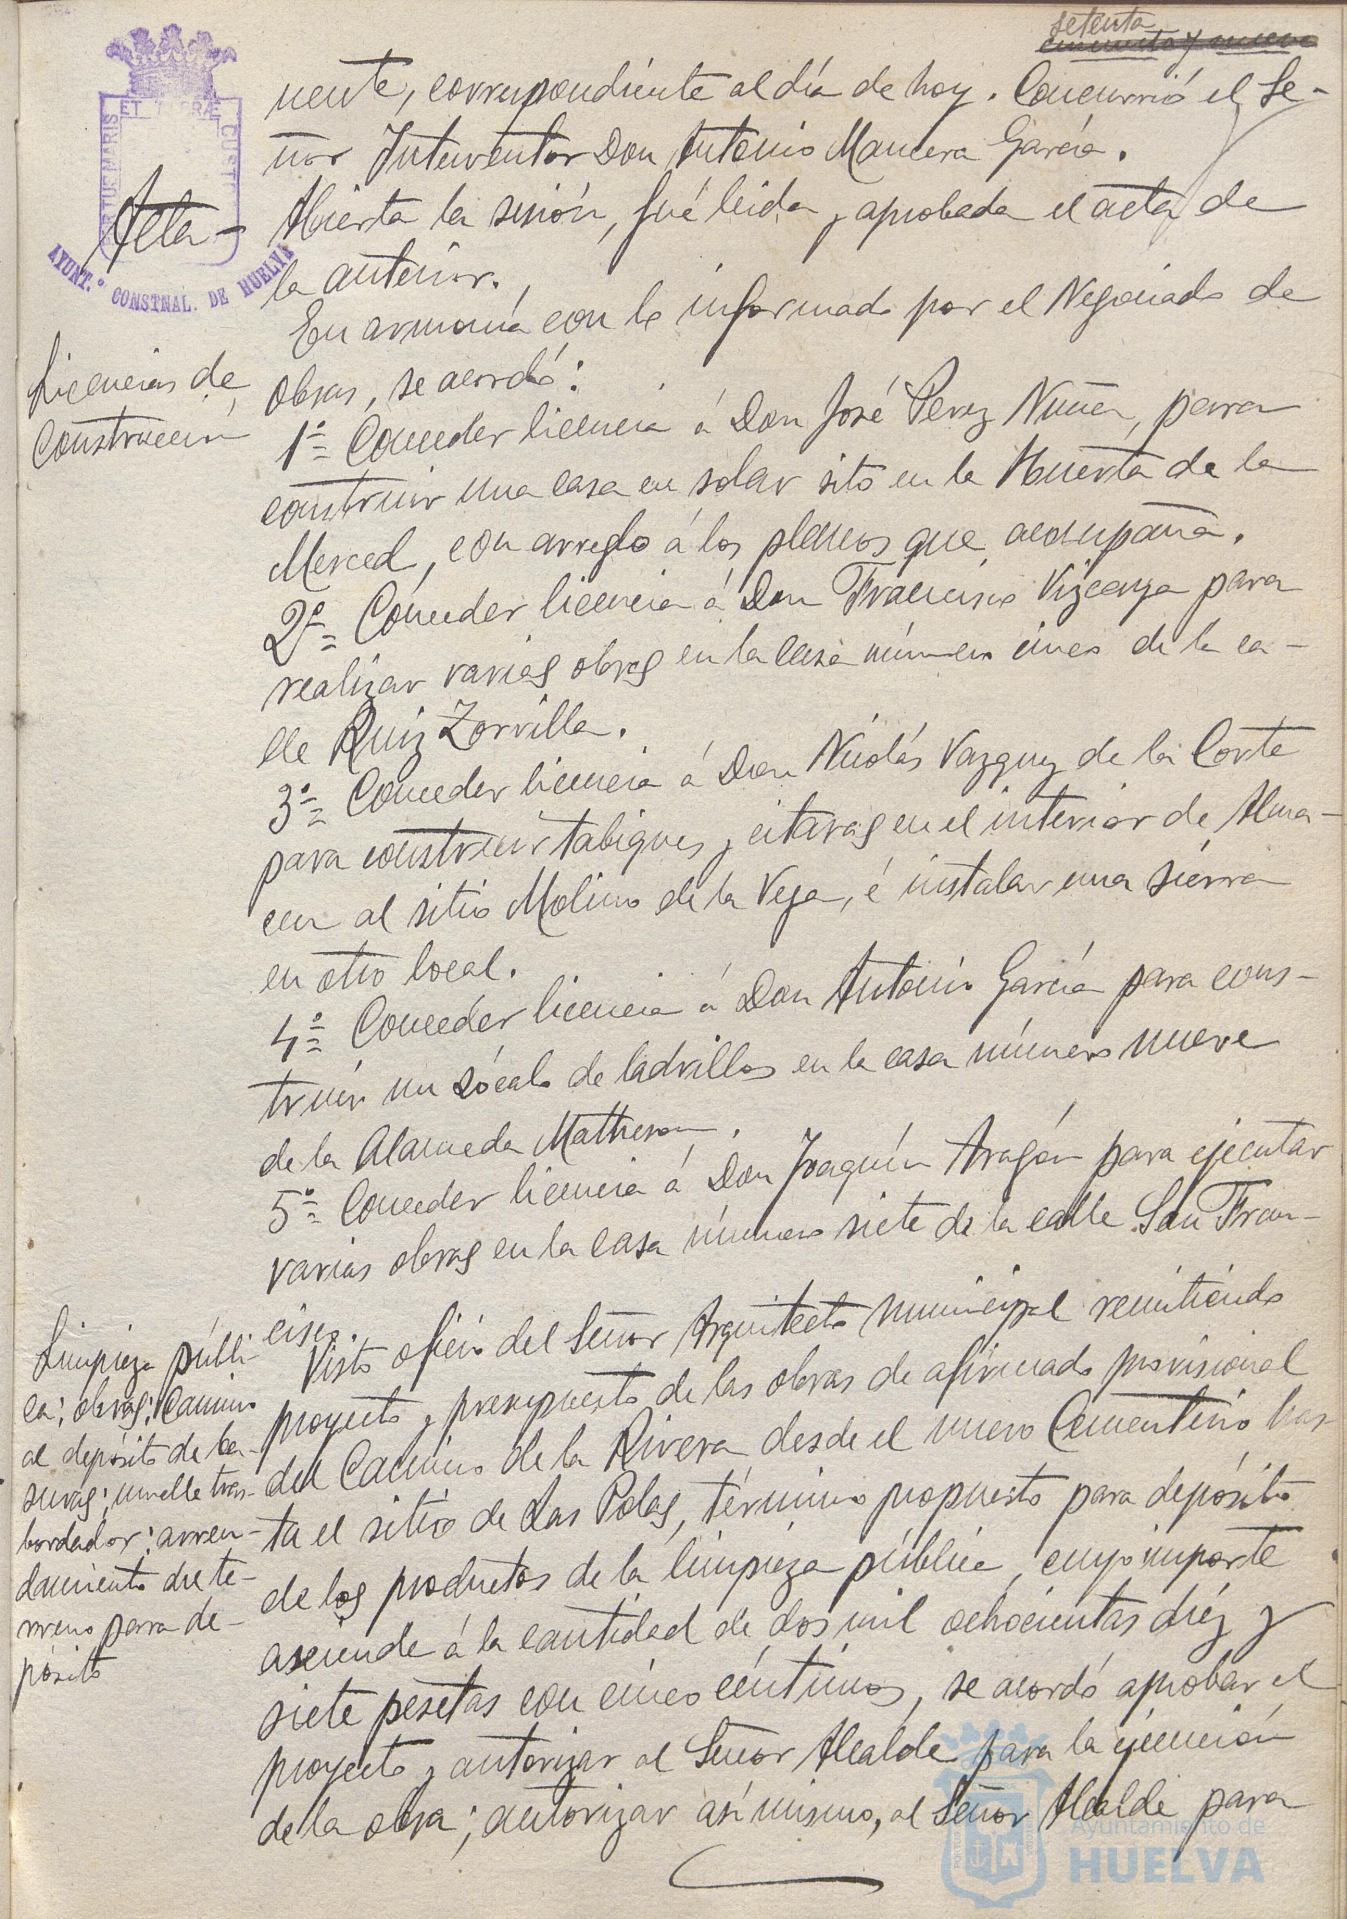 setenta
cincuenta y nueve
nente, correspondiente al día de hoy. Concurrió el Se-
ñor Interventor Don Antonio Mancera García.
PORTUS MARIS ET TERRÆ CUSTODIA
AYUNT.º CONSTNAL. DE HUELVA
Acta-
Abierta la sesión, fué leida y aprobada el acta de
la anterior.
En armonía con lo informado por el Negociado de
obras, se acordó:
Licencias de
Construcción
1º = Conceder licencia á Don José Perez Nuñez, para
construir una casa en solar sito en la Huerta de la
Merced, con arreglo á los planos que acompaña.
2º = Conceder licencia á Don Francisco Vizcaya para
realizar varias obras en la casa número cinco de la ca-
lle Ruiz Zorrilla.
3º = Conceder licencia á Don Nicolás Vazquez de la Corte
para construir tabiques y citaras en el interior de Alma-
cen al sitio Molino de la Vega, é instalar una sierra
en otro local.
4º = Conceder licencia á Don Antonio García para cons-
truir un zócalo de ladrillos en la casa número nueve
de la Alameda Matheson.
5º = Conceder licencia á Don Joaquín Aragón para ejecutar
varias obras en la casa número siete de la calle San Fran-
cisco.
Limpieza públi-
ca; obras; Camino
al depósito de ba-
suras; muelle tras-
bordador; arren-
damiento de te-
rreno para de-
pósito
Visto oficio del Señor Arquitecto municipal remitiendo
proyecto y presupuesto de las obras de afirmado provisional
del Camino de la Rivera desde el nuevo Cementerio has-
ta el sitio de Las Polas, término propuesto para depósito
de los productos de la limpieza pública, cuyo importe
asciende á la cantidad de dos mil ochocientas diez y
siete pesetas con cinco céntimos, se acordó aprobar el
proyecto y autorizar al Señor Alcalde para la ejecución
de la obra; autorizar así mismo, al Señor Alcalde para
Ayuntamiento de
HUELVA